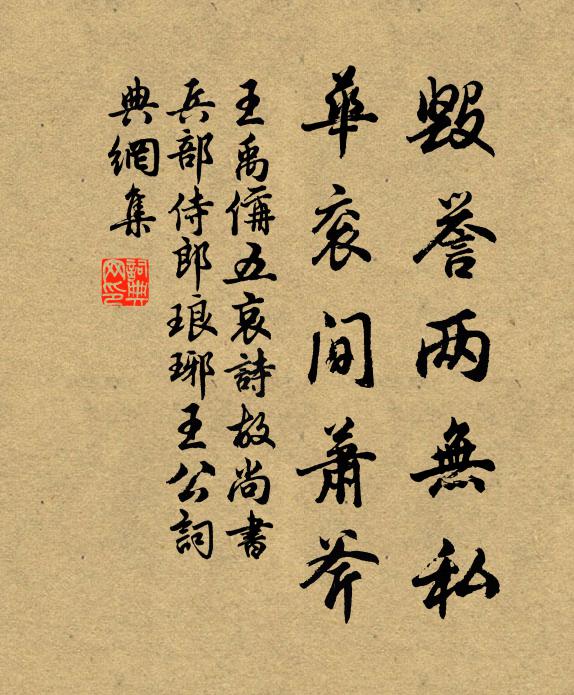 毀譽兩無私
華衮間蕭斧
王禹偁五哀詩故尚書
兵部侍郎琅琊王公詞
典網集
詞典網印